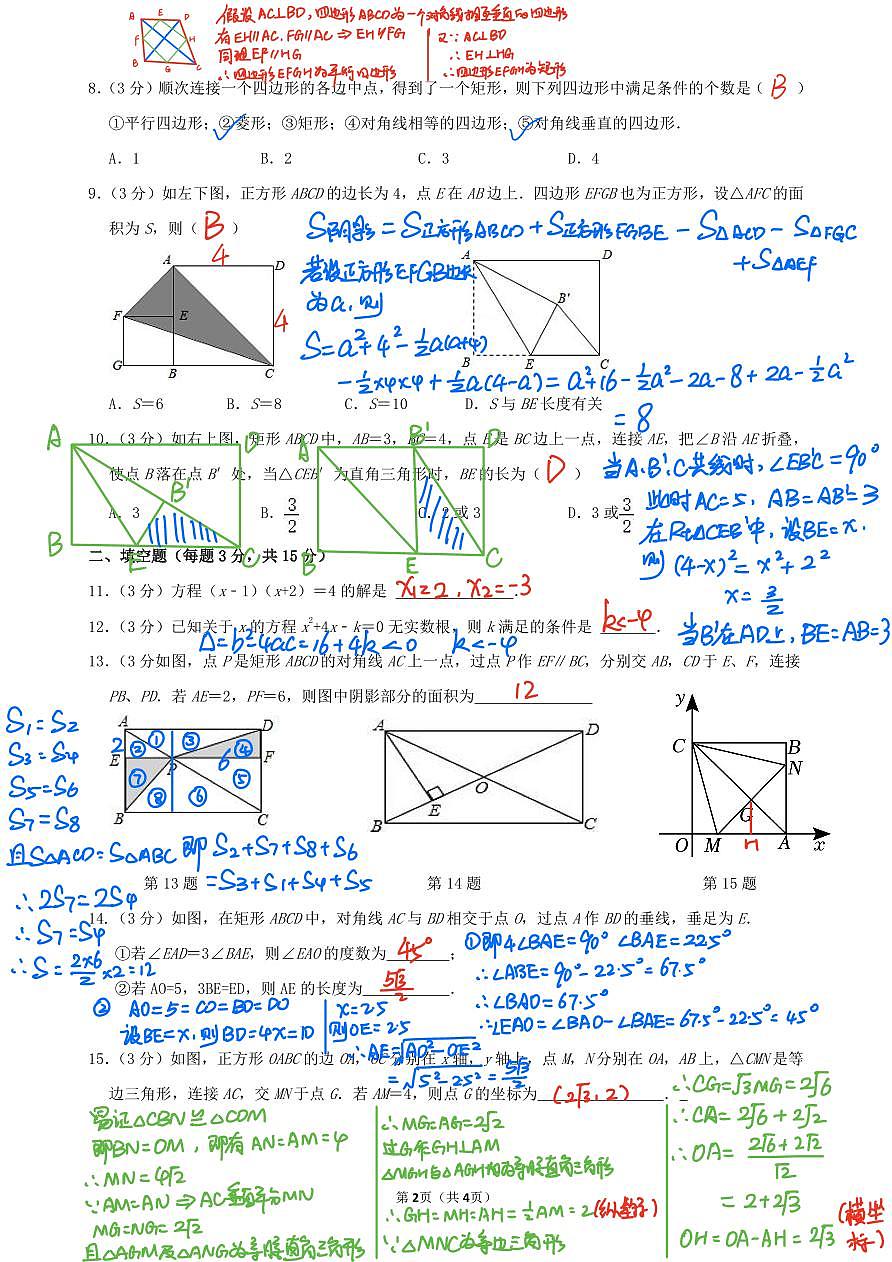 A E D
F H
B G C
假设AC⊥BD,四边形ABCD为一个对角线相互垂直的四边形
有EH∥AC.FG∥AC⇒EH∥FG
同理EF∥HG
∴四边形EFGH为平行四边形
又∵AC⊥BD
∴EH⊥HG
∴四边形EFGH为矩形
8.(3分)顺次连接一个四边形的各边中点,得到了一个矩形,则下列四边形中满足条件的个数是( B )
①平行四边形;②菱形;③矩形;④对角线相等的四边形;⑤对角线垂直的四边形.
A.1 B.2 C.3 D.4
9.(3分)如左下图,正方形ABCD的边长为4,点E在AB边上.四边形EFGB也为正方形,设△AFC的面
积为S,则( B )
S阴影=S正方形ABCD+S正方形FGBE-S△ACD-S△FGC
+S△AEF
若设正方形EFGB边长
为a.则
S=a²+4²-½a(a+4)
-½×4×4+½a(4-a)=a²+16-½a²-2a-8+2a-½a²
=8
4
A D
F E 4
G B C
A D
B'
B E C
A.S=6 B.S=8 C.S=10 D.S与BE长度有关
10.(3分)如右上图,矩形ABCD中,AB=3,BC=4,点E是BC边上一点,连接AE,把∠B沿AE折叠,
使点B落在点B'处,当△CEB'为直角三角形时,BE的长为( D )
A.3 B.3/2 C.2或3 D.3或3/2
A D
B'
B E C
A B' D
B E C
当A.B'.C共线时,∠EB'C=90°
此时AC=5,AB=AB'=3
在Rt△CEB'中,设BE=x.
则(4-x)²=x²+2²
x=3/2
当B'在AD上,BE=AB=3
二、填空题(每题3分,共15分)
11.(3分)方程(x﹣1)(x+2)=4的解是 x₁=2,x₂=-3 .
12.(3分)已知关于x的方程x²+4x﹣k=0无实数根,则k满足的条件是 k<-4 .
△=b²-4ac=16+4k<0 k<-4
13.(3分如图,点P是矩形ABCD的对角线AC上一点,过点P作EF∥BC,分别交AB,CD于E、F,连接
PB、PD.若AE=2,PF=6,则图中阴影部分的面积为 12
S₁=S₂
S₃=S₄
S₅=S₆
S₇=S₈
且S△ACD=S△ABC 即S₂+S₇+S₈+S₆
=S₃+S₁+S₄+S₅
∴2S₇=2S₄
∴S₇=S₄
∴S=2×6/2×2=12
A D
2 ① ② ③ ④
E P 6 F
⑦ ⑧ ⑥ ⑤
B C
A D
O
E
B C
y
C B
N
G
O M H A x
第13题 第14题 第15题
14.(3分)如图,在矩形ABCD中,对角线AC与BD相交于点O,过点A作BD的垂线,垂足为E.
①若∠EAD=3∠BAE,则∠EAO的度数为 45° ;
②若AO=5,3BE=ED,则AE的长度为 5√3/2 .
①即4∠BAE=90° ∠BAE=22.5°
∴∠ABE=90°-22.5°=67.5°
∴∠BAO=67.5°
∴∠EAO=∠BAO-∠BAE=67.5°-22.5°=45°
② AO=5=CO=BO=DO
设BE=x.则BD=4x=10
x=2.5
则OE=2.5
∴AE=√AO²-OE²
=√5²-2.5²=5√3/2
15.(3分)如图,正方形OABC的边OA,OC分别在x轴,y轴上,点M,N分别在OA,AB上,△CMN是等
边三角形,连接AC,交MN于点G.若AM=4,则点G的坐标为 (2√3,2) .
易证△CBN≌△COM
即BN=OM,即有AN=AM=4
∴MN=4√2
∵AM=AN⇒AC垂直平分MN
MG=NG=2√2
且△AGM及△ANG为等腰直角三角形
∴MG=AG=2√2
过G作GH⊥AM
△MGH与△AGH均为等腰直角三角形
∴GH=MH=AH=½AM=2(纵坐标)
∵△MNC为等边三角形
∴CG=√3MG=2√6
∴CA=2√6+2√2
∴OA=2√6+2√2/√2
=2+2√3
OH=OA-AH=2√3(横坐标)
第2页(共4页)